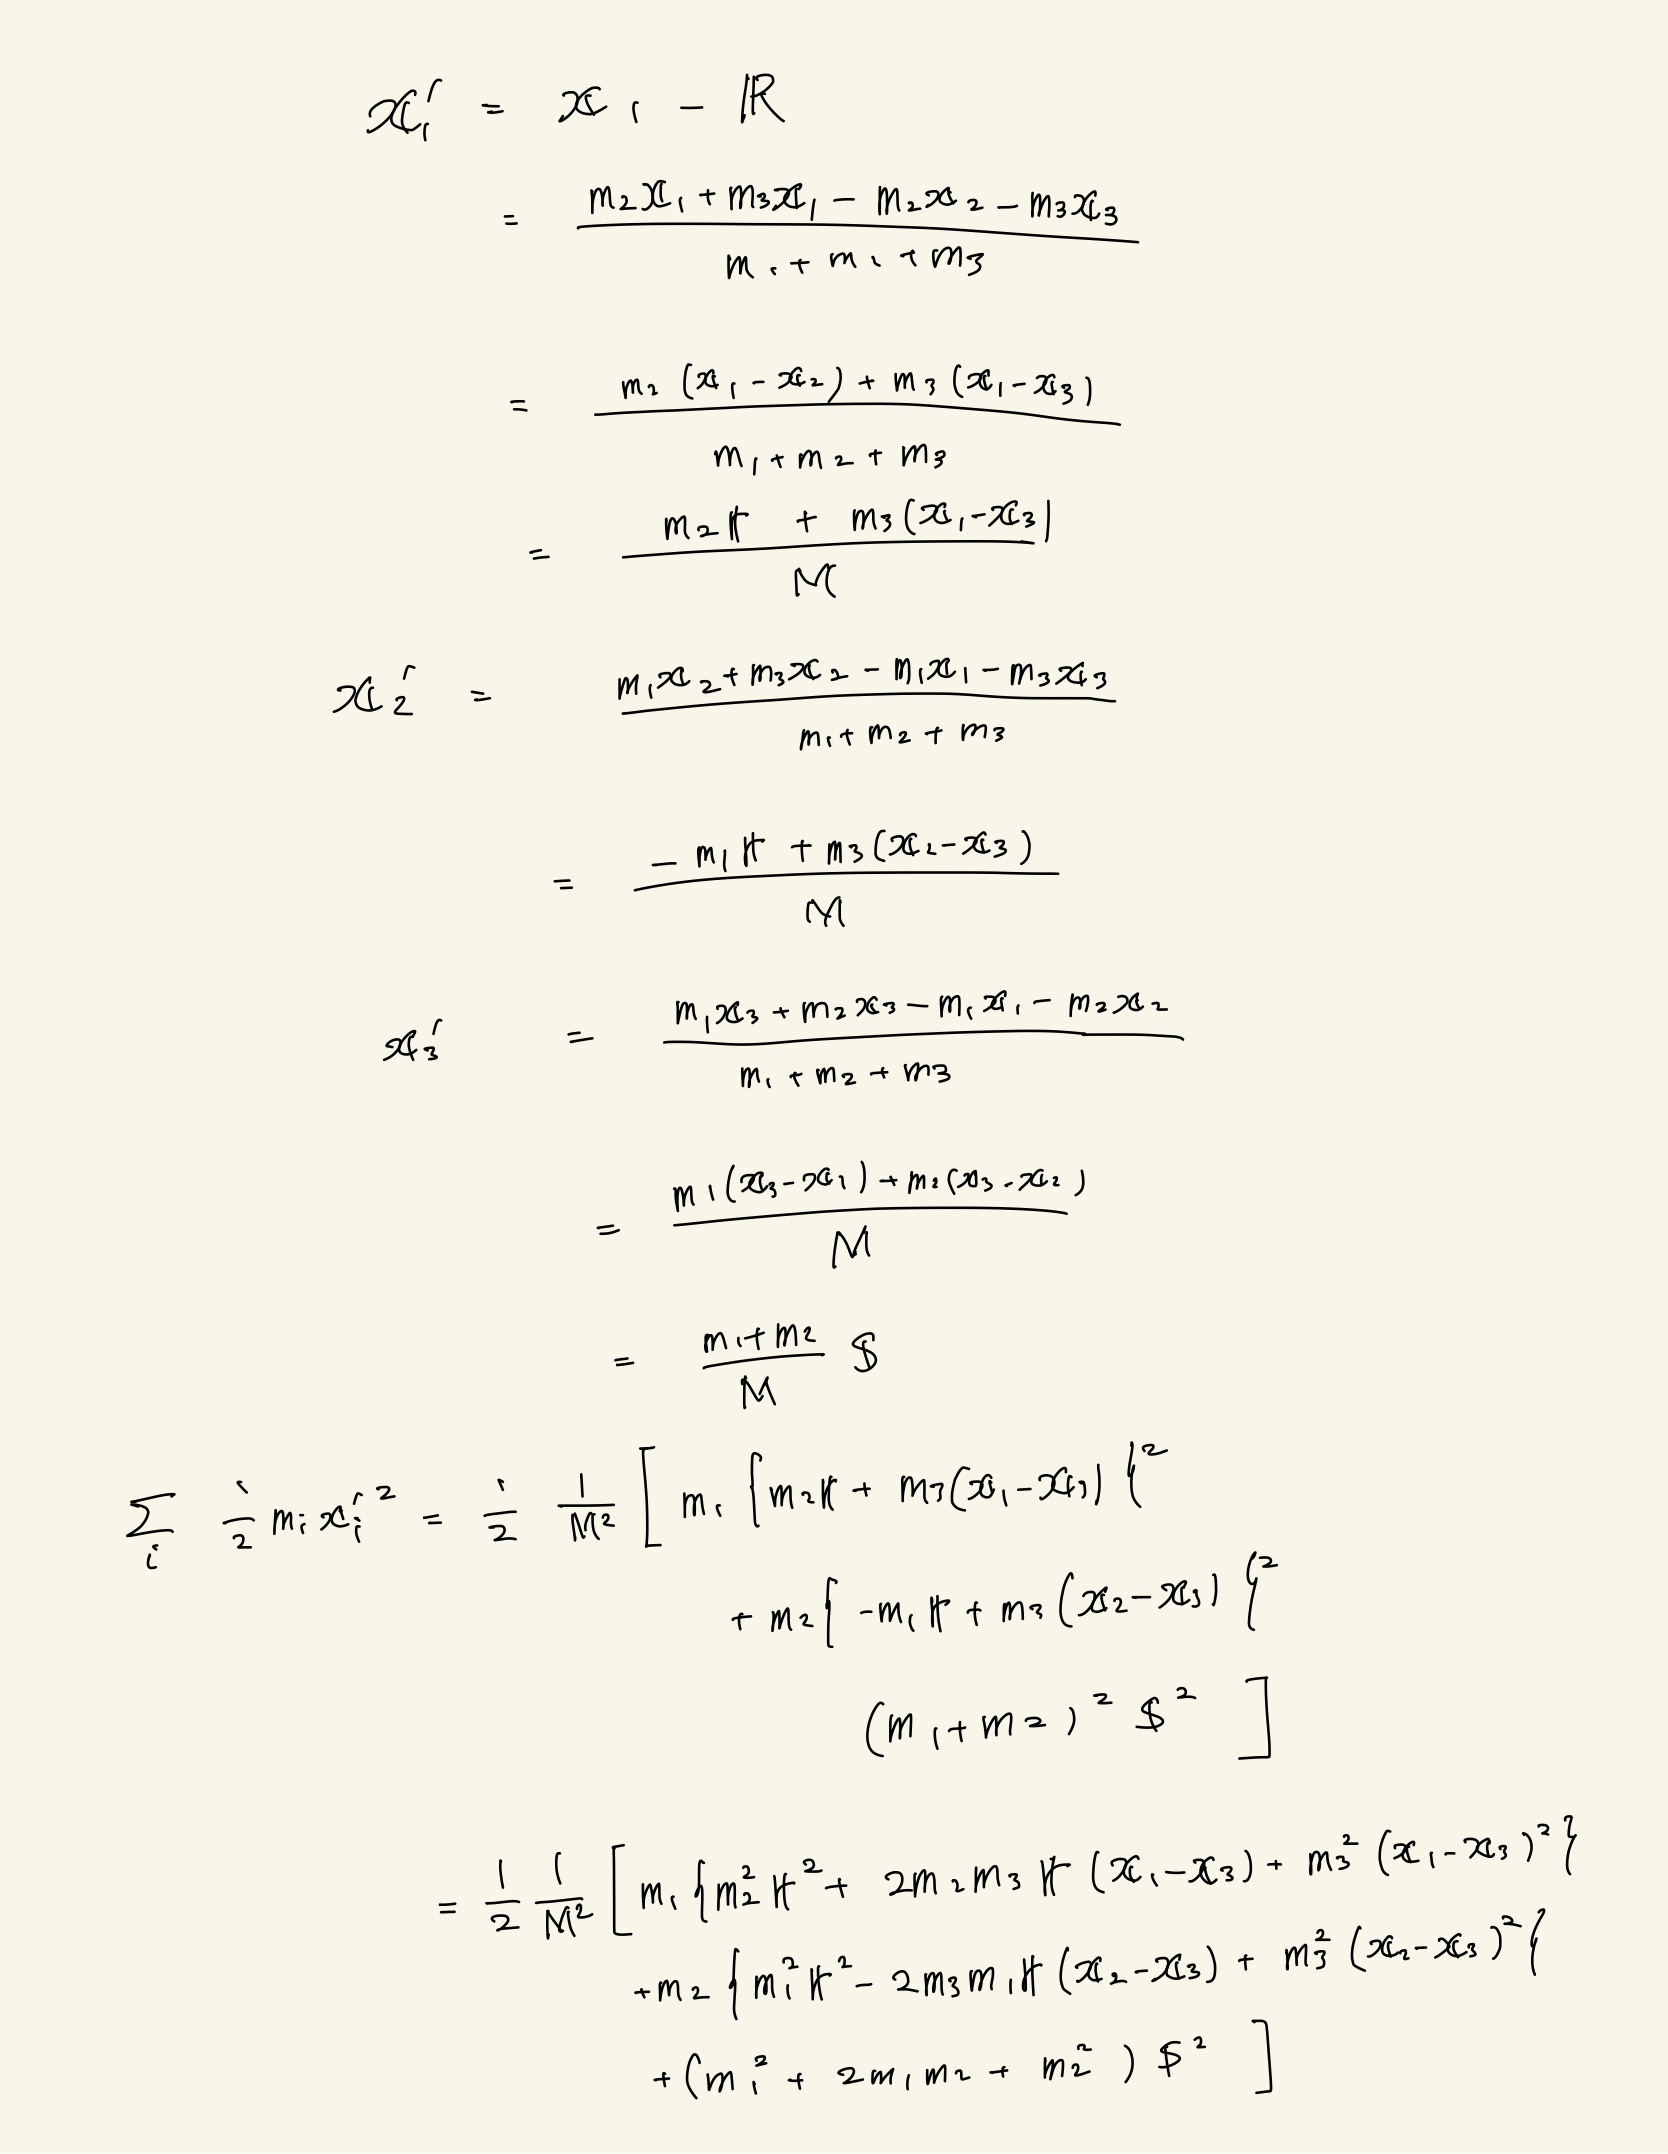 𝕩₁' = 𝕩₁ - ℝ
= (m₂𝕩₁ + m₃𝕩₁ - m₂𝕩₂ - m₃𝕩₃) / (m₁ + m₁ + m₃)
= (m₂(𝕩₁ - 𝕩₂) + m₃(𝕩₁ - 𝕩₃)) / (m₁ + m₂ + m₃)
= (m₂𝕣 + m₃(𝕩₁ - 𝕩₃)) / M
𝕩₂' = (m₁𝕩₂ + m₃𝕩₂ - m₁𝕩₁ - m₃𝕩₃) / (m₁ + m₂ + m₃)
= (-m₁𝕣 + m₃(𝕩₂ - 𝕩₃)) / M
𝕩₃' = (m₁𝕩₃ + m₂𝕩₃ - m₁𝕩₁ - m₂𝕩₂) / (m₁ + m₂ + m₃)
= (m₁(𝕩₃ - 𝕩₁) + m₂(𝕩₃ - 𝕩₂)) / M
= (m₁ + m₂)/M 𝕊
∑ᵢ 1/2 mᵢ𝕩ᵢ'² = 1/2 1/M² [ m₁ { m₂𝕣 + m₃(𝕩₁ - 𝕩₃) }²
+ m₂ { -m₁𝕣 + m₃(𝕩₂ - 𝕩₃) }²
(m₁ + m₂)² 𝕊² ]
= 1/2 1/M² [ m₁ { m₂²𝕣² + 2m₂m₃𝕣(𝕩₁ - 𝕩₃) + m₃²(𝕩₁ - 𝕩₃)² }
+ m₂ { m₁²𝕣² - 2m₃m₁𝕣(𝕩₂ - 𝕩₃) + m₃²(𝕩₂ - 𝕩₃)² }
+ (m₁² + 2m₁m₂ + m₂²) 𝕊² ]